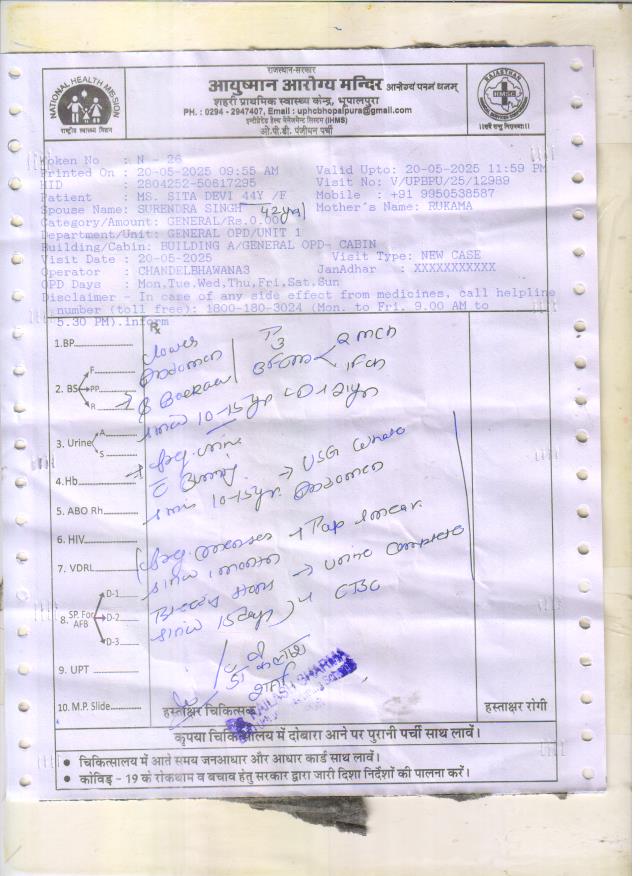 राजस्थान-सरकार
आयुष्मान आरोग्य मन्दिर आरोग्यं परमं धनम्
शहरी प्राथमिक स्वास्थ्य केन्द्र, भूपालपुरा
PH. : 0294 - 2947407, Email : uphcbhopalpura@gmail.com
इन्टीग्रेटेड हैल्थ मैनेजमेन्ट सिस्टम (IHMS)
ओ.पी.डी. पंजीयन पर्ची
NATIONAL HEALTH MISSION
राष्ट्रीय स्वास्थ्य मिशन
RAJASTHAN
Token No : N - 26
Printed On : 20-05-2025 09:55 AM Valid Upto: 20-05-2025 11:59 PM
HID : 2804252-50617295 Visit No: V/UPBPU/25/12989
Patient : MS. SITA DEVI 44Y /F Mobile : +91 9950538587
Spouse Name: SURENDRA SINGH 42yrs Mother's Name: RUKAMA
Category/Amount: GENERAL/Rs.0.00
Department/Unit: GENERAL OPD/UNIT 1
Building/Cabin: BUILDING A/GENERAL OPD- CABIN
Visit Date : 20-05-2025 Visit Type: NEW CASE
Operator : CHANDELBHAWANA3 JanAdhar : XXXXXXXXXXX
OPD Days : Mon,Tue,Wed,Thu,Fri,Sat,Sun
Disclaimer - In case of any side effect from medicines, call helpline
number (toll free): 1800-180-3024 (Mon. to Fri. 9.00 AM to
5.30 PM).Inform
Rx
1.BP
lower P3 2 mch
F.
abdomen 1 fch
2. BS PP
R
since 10-15yr
3. Urine A
S
freq. urine
4.Hb
c Burning → USG whole
since 10-15yr. Abdomen
5. ABO Rh
6. HIV
freq. menses Pap smear
7. VDRL
since 1 month
→ urine complete
8. SP. For AFB D-1
D-2
D-3
since 15 days CBC
9. UPT
डॉ कैलाश
शर्मा
KAILASH SHARMA
10. M.P. Slide
हस्ताक्षर चिकित्सक हस्ताक्षर रोगी
कृपया चिकित्सालय में दोबारा आने पर पुरानी पर्ची साथ लावें।
● चिकित्सालय में आते समय जनआधार और आधार कार्ड साथ लावें।
● कोविड - 19 के रोकथाम व बचाव हेतु सरकार द्वारा जारी दिशा निर्देशों की पालना करें।